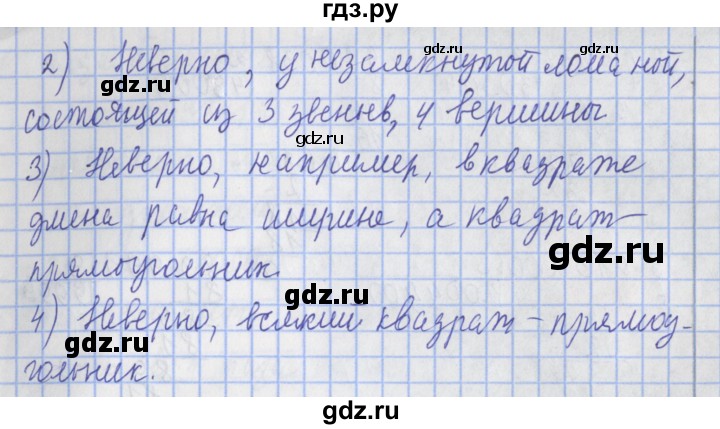 гдз.ру
2) Неверно, у незамкнутой ломаной,
gdz.ru
gdz.ru
состоящей из 3 звеньев, 4 вершины
gdz.ru
3) Неверно, например, в квадрате
gdz.ru
длина равна ширине, а квадрат-
gdz.ru
прямоугольник.
gdz.ru
4) Неверно, всякий квадрат - прямоу-
gdz.ru
гольник.
gdz.ru
gdz.ru